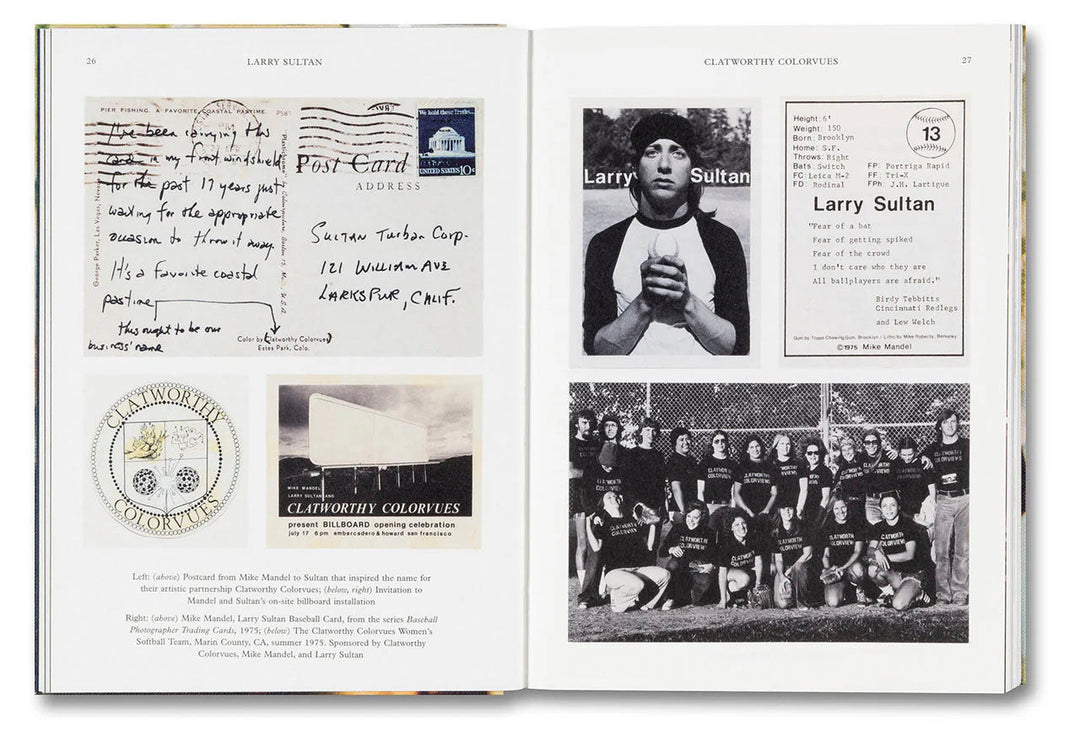 26
LARRY SULTAN
PIER FISHING. A FAVORITE COASTAL PASTIME. P561
I've been carrying this
card in my front windshield
for the past 17 years just
waiting for the appropriate
occasion to throw it away.
It's a favorite coastal
pastime
this ought to be our
business' name
George Parker, Las Vegas, Nevada
Color by Clatworthy Colorvues
Estes Park, Colo.
Post Card
ADDRESS
We hold these Truths...
UNITED STATES 10c
SULTAN Turban Corp.
121 William AVE
LARKSPUR, CALIF.
CLATWORTHY
COLORVUES
MIKE MANDEL
LARRY SULTAN AND
CLATWORTHY COLORVUES
present BILLBOARD opening celebration
july 17 6 pm embarcadero & howard san francisco
Left: (above) Postcard from Mike Mandel to Sultan that inspired the name for
their artistic partnership Clatworthy Colorvues; (below, right) Invitation to
Mandel and Sultan's on-site billboard installation
Right: (above) Mike Mandel, Larry Sultan Baseball Card, from the series Baseball
Photographer Trading Cards, 1975; (below) The Clatworthy Colorvues Women's
Softball Team, Marin County, CA, summer 1975. Sponsored by Clatworthy
Colorvues, Mike Mandel, and Larry Sultan
CLATWORTHY COLORVUES
27
Larry Sultan
Height: 6'
Weight: 150
Born: Brooklyn
Home: S.F.
Throws: Right
Bats: Switch FP: Portriga Rapid
FC: Leica M-2 FF: Tri-X
FD: Rodinal FPh: J.H. Lartigue
13
Larry Sultan
"Fear of a bat
Fear of getting spiked
Fear of the crowd
I don't care who they are
All ballplayers are afraid."
Birdy Tebbitts
Cincinnati Redlegs
and Lew Welch
Gum by Topps Chewing Gum, Brooklyn / Litho by Mike Roberts, Berkeley
©1975 Mike Mandel
CLATWORTHY
COLORVIEWS